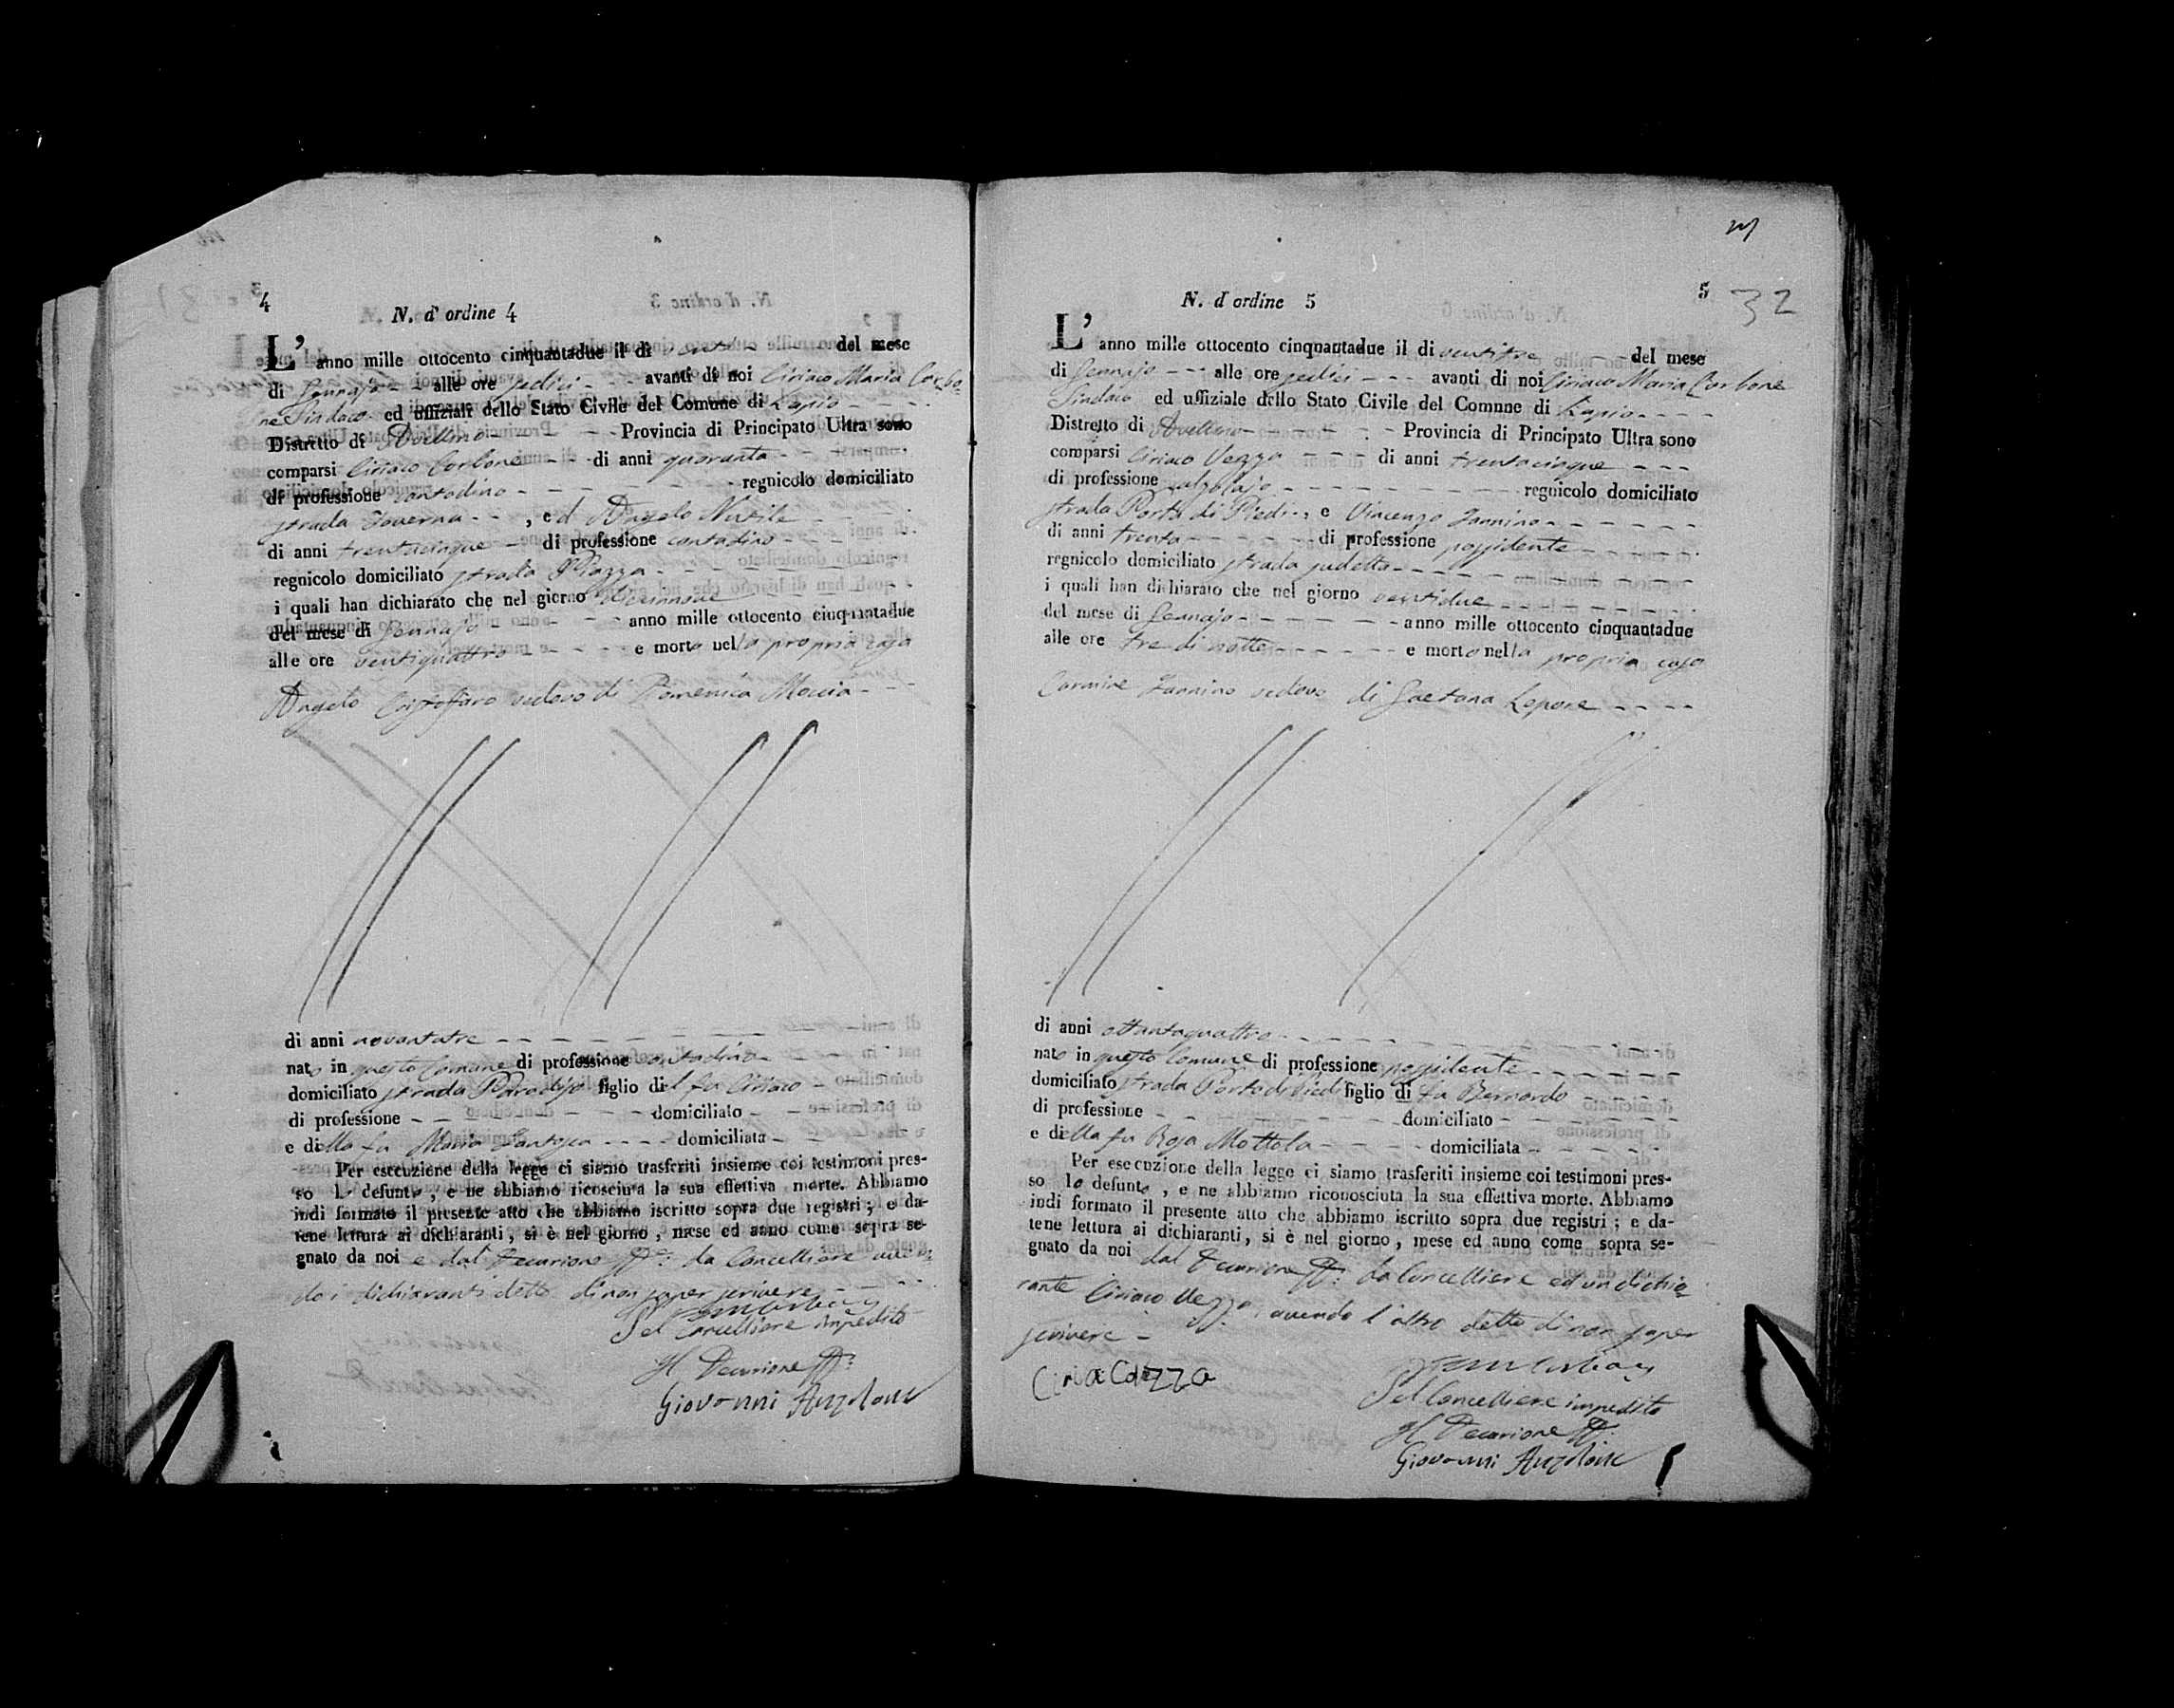 4
N. d' ordine 4
L' anno mille ottocento cinquantadue il di venti del mese
di Gennajo alle ore sedici avanti di noi Ciriaco Maria Carbo-
ne Sindaco ed uffiziale dello Stato Civile del Comune di Lapio
Distretto di Avellino Provincia di Principato Ultra sono
comparsi Ciriaco Carbone di anni quaranta
di professione contadino regnicolo domiciliato
strada Taverna , ed Angelo Nutile
di anni trentacinque di professione contadino
regnicolo domiciliato strada Piazza
i quali han dichiarato che nel giorno diecinnove
del mese di Gennajo anno mille ottocento cinquantadue
alle ore ventiquattro e morto nella propria casa
Angelo Cristofaro vedovo di Domenica Moccia
di anni novantatre
nato in questo Comune di professione contadino
domiciliato strada Paradiso figlio del fu Ciriaco
di professione domiciliato
e della fu Maria domiciliata
Per esecuzione della legge ci siamo trasferiti insieme coi testimoni pres-
so lo defunto , e ne abbiamo ricosciuta la sua effettiva morte. Abbiamo
indi formato il presente atto che abbiamo iscritto sopra due registri ; e da-
tene lettura ai dichiaranti , si è nel giorno , mese ed anno come sopra se-
gnato da noi e dal Decurione da Cancelliere aven-
do i dichiaranti detto di non saper scrivere
Pel Cancelliere impedito
Il Decurione
Giovanni Anzalone
5
32
N. d' ordine 5
L' anno mille ottocento cinquantadue il di ventitre del mese
di Gennajo alle ore sedici avanti di noi Ciriaco Maria Carbone
Sindaco ed uffiziale dello Stato Civile del Comune di Lapio
Distretto di Avellino Provincia di Principato Ultra sono
comparsi Ciriaco Vezza di anni trentacinque
di professione calzolajo regnicolo domiciliato
strada Porta di Piedi , e Vincenzo Iannino
di anni trenta di professione possidente
regnicolo domiciliato strada sudetta
i quali han dichiarato che nel giorno ventidue
del mese di Gennajo anno mille ottocento cinquantadue
alle ore tre di notte e morto nella propria casa
Carmine Iannino vedovo di Gaetana Lepore
di anni ottantaquattro
nato in questo Comune di professione possidente
domiciliato strada Porta di Piedi figlio di fu Bernardo
di professione domiciliato
e della fu Rosa Mottola domiciliata
Per esecuzione della legge ci siamo trasferiti insieme coi testimoni pres-
so lo defunto , e ne abbiamo riconosciuta la sua effettiva morte. Abbiamo
indi formato il presente atto che abbiamo iscritto sopra due registri ; e da-
tene lettura ai dichiaranti, si è nel giorno , mese ed anno come sopra se-
gnato da noi dal Decurione da Cancelliere ed un dichia-
rante Ciriaco Vezza, avendo l'altro detto di non saper
scrivere
Pel Cancelliere impedito
Il Decurione
Giovanni Anzalone